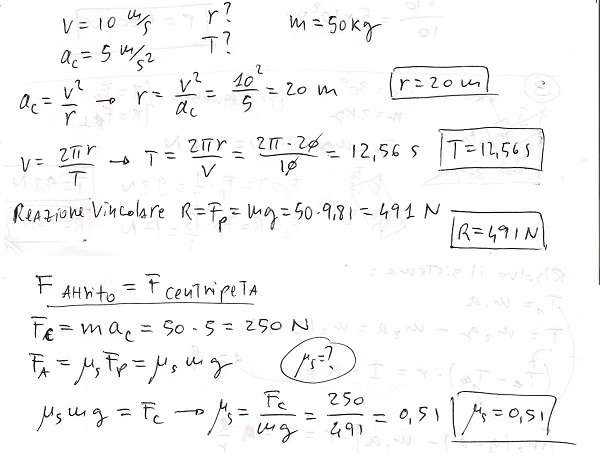 v = 10 m/s r? m = 50 kg
a_c = 5 m/s² T?
a_c = v²/r → r = v²/a_c = 10²/5 = 20 m r = 20 m
v = 2πr/T → T = 2πr/v = 2π·20/10 = 12,56 s T = 12,56 s
Reazione Vincolare R = F_p = mg = 50·9,81 = 491 N
R = 491 N
F_Attrito = F_centripeta
F_c = m a_c = 50 · 5 = 250 N
F_A = μ_s F_p = μ_s m g μ_s = ?
μ_s m g = F_c → μ_s = F_c/mg = 250/491 = 0,51 μ_s = 0,51